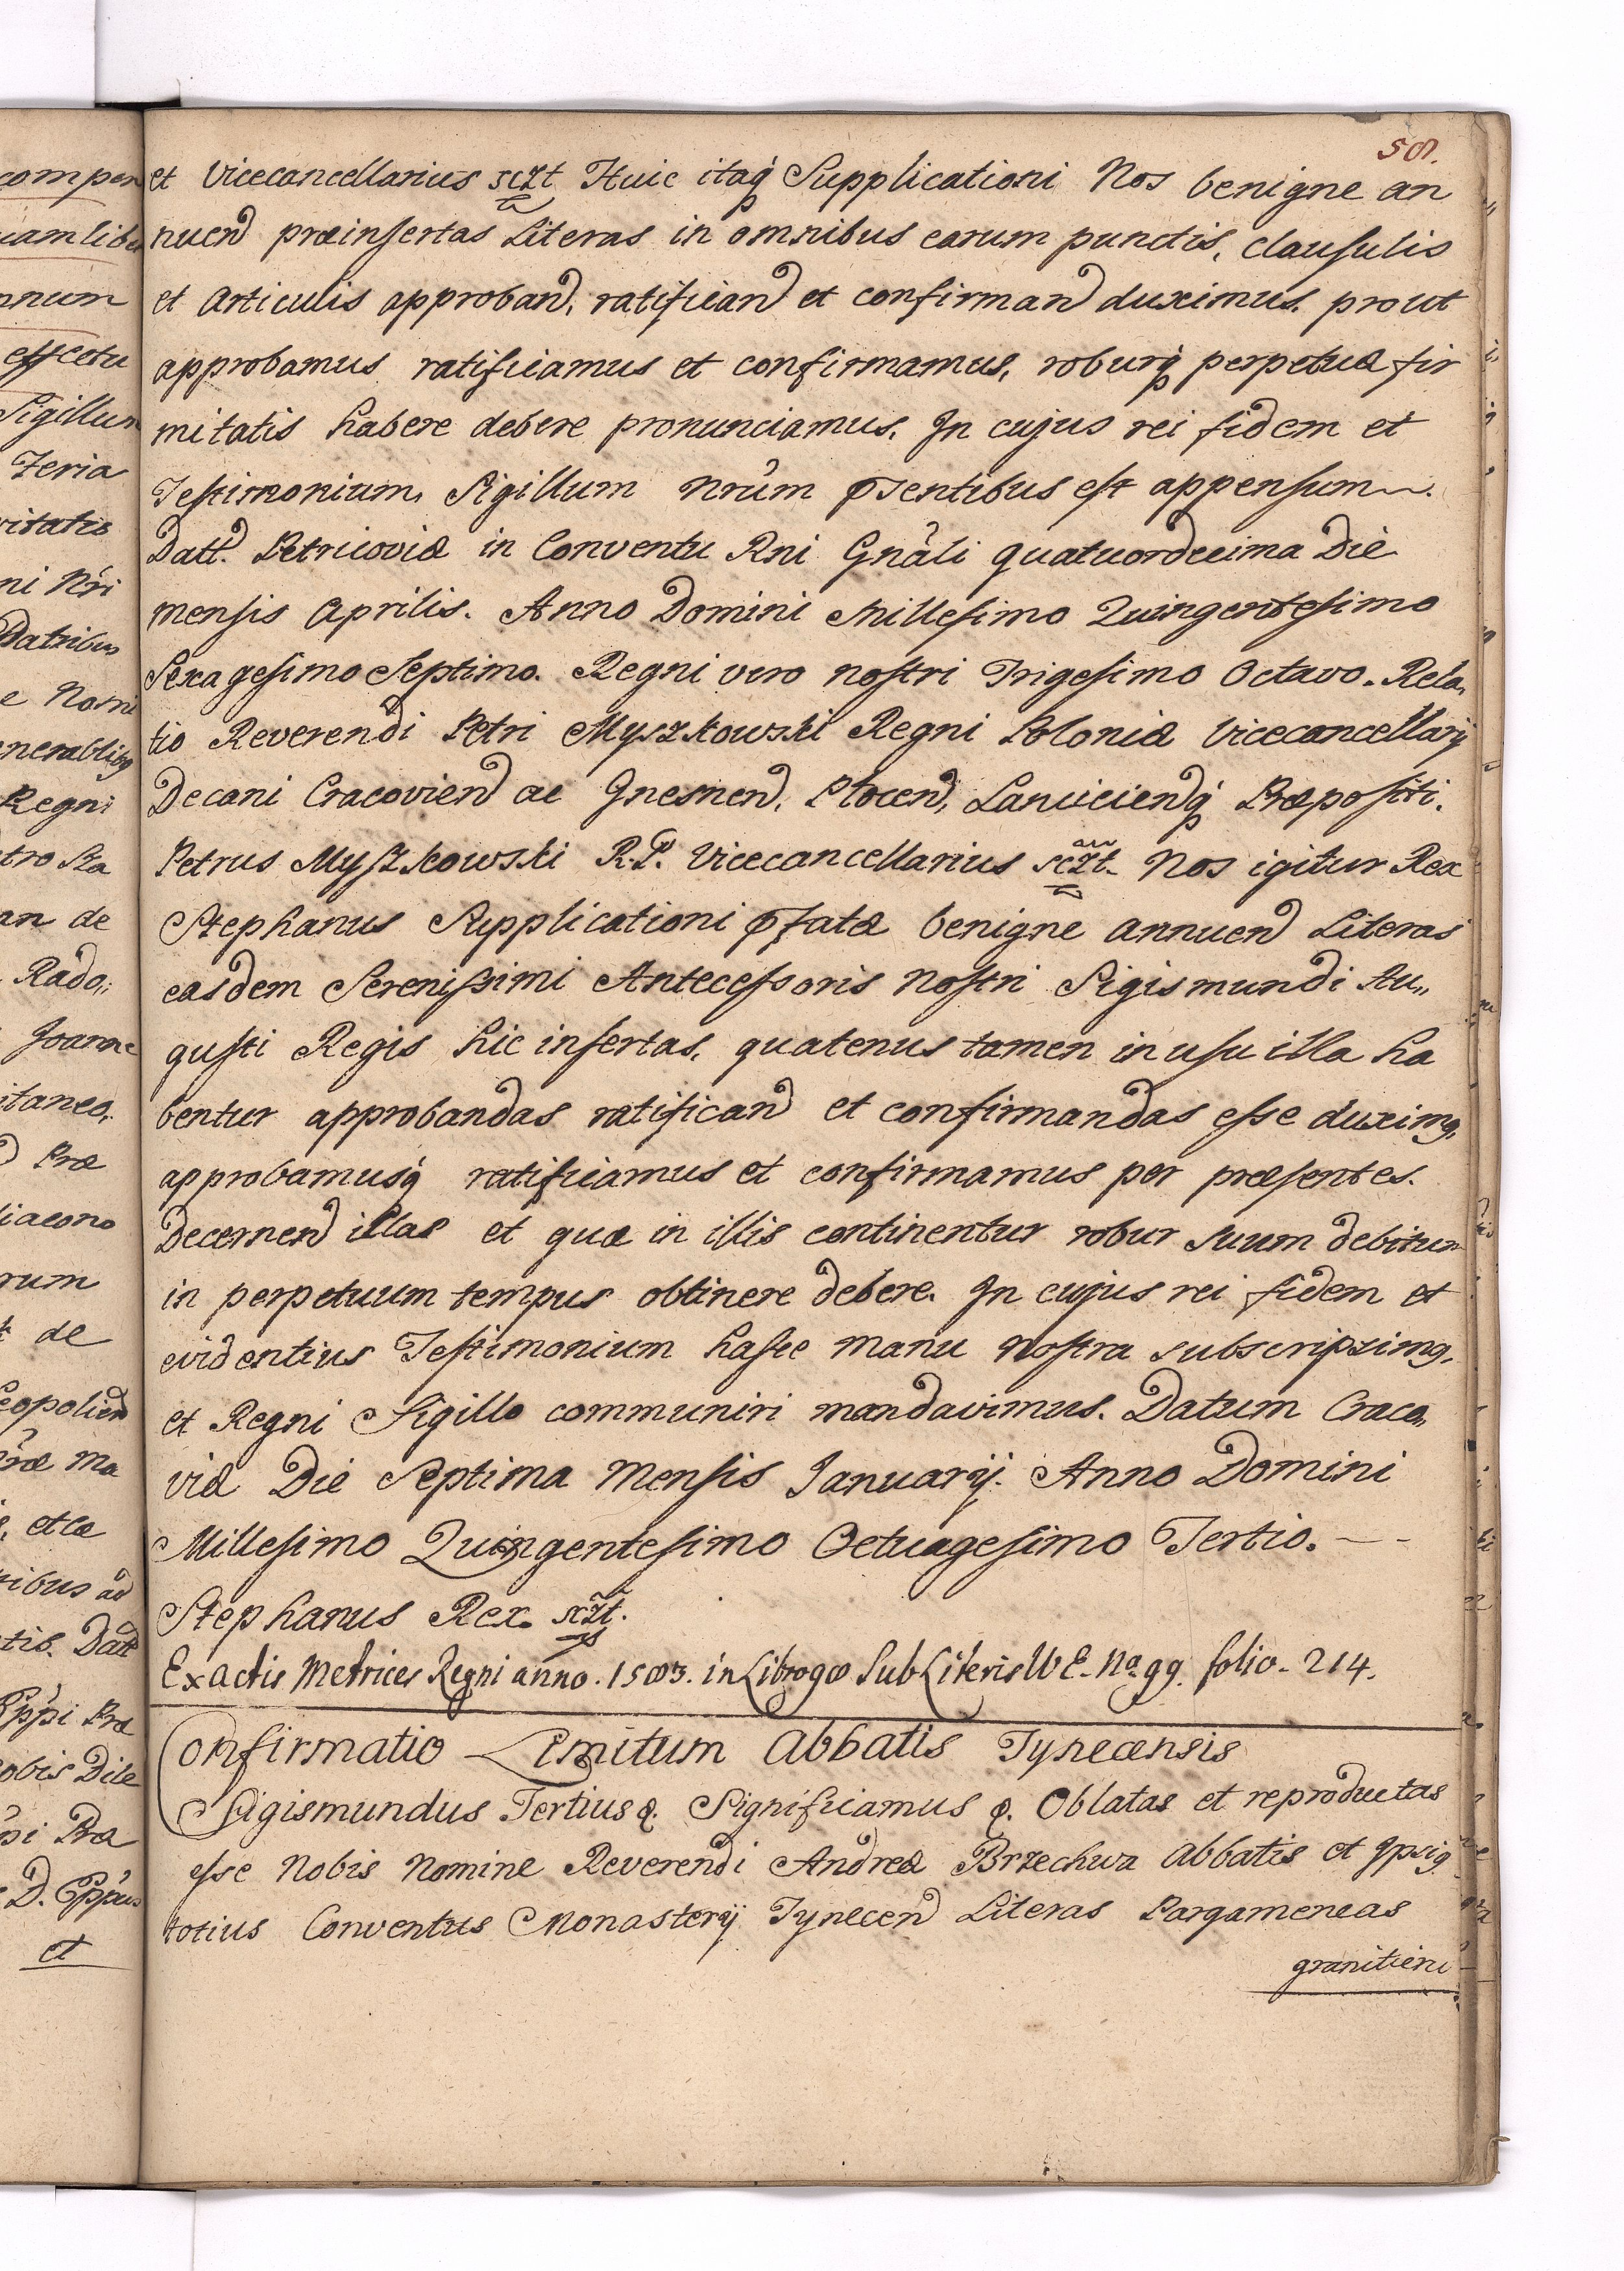 58.
et Vicecancellarius sczt Huic itaq́ Supplicationi Nos benigne an
nuend præinsertas Literas in omnibus earum punctis, clausulis
et Articulis approband, ratificand et confirmand duximus. prout
approbamus ratificamus et confirmamus, roburq́ perpetuæ fir
mitatis habere debere pronunciamus. In cujus rei fidem et
Testimonium, Sigillum nrũm psentibus est appensum.
Datt. Petricoviæ in Conventu Rni Gnãli quatuordecima Die
mensis Aprilis. Anno Domini Millesimo Quingentesimo
Sexagesimo Septimo. Regni vero nostri Trigesimo Octavo. Rela,,
tio Reverendi Petri Myszkowski Regni Poloniæ Vicecancellarij
Decani Cracoviend ac Gnesnend, Plocend, Lanciciendq́ Præpositi.
Petrus Myszkowski R.P. Vicecancellarius sczt. Nos igitur Rex
Stephanus Supplicationi pfatæ benigne annuend Literas
easdem Serenissimi Antecessoris Nostri Sigismundi Au,,
gusti Regis hic insertas, quatenus tamen in usu illa ha
bentur approbandas ratificand et confirmandas esse duximg,
approbamusq́ ratificamus et confirmamus per præsentes.
Decernend illas et quæ in illis continentur robur suum debitum
in perpetuum tempus obtinere debere. In cujus rei fidem et
evidentius Testimonium hasce manu nostra subscripsimg,
et Regni Sigillo communiri mandavimus. Datum Craco,,
viæ Die Septima Mensis Januarij. Anno Domini
Millesimo Quingentesimo Octuagesimo Tertio. - -
Stephanus Rex. sczt.
Ex Actis Metrices Regni anno. 1583. in Libro Sub Literis W E. No. 99. folio. 214.
Confirmatio Limitum Abbatis Tynecensis
Sigismundus Tertius &. Significamus &. Oblatas et reproductas
esse Nobis Nomine Reverendi Andreæ Brzechwa Abbatis et Ipsig
totius Conventus Monasterij Tynecend Literas Pargameneas
granitieni